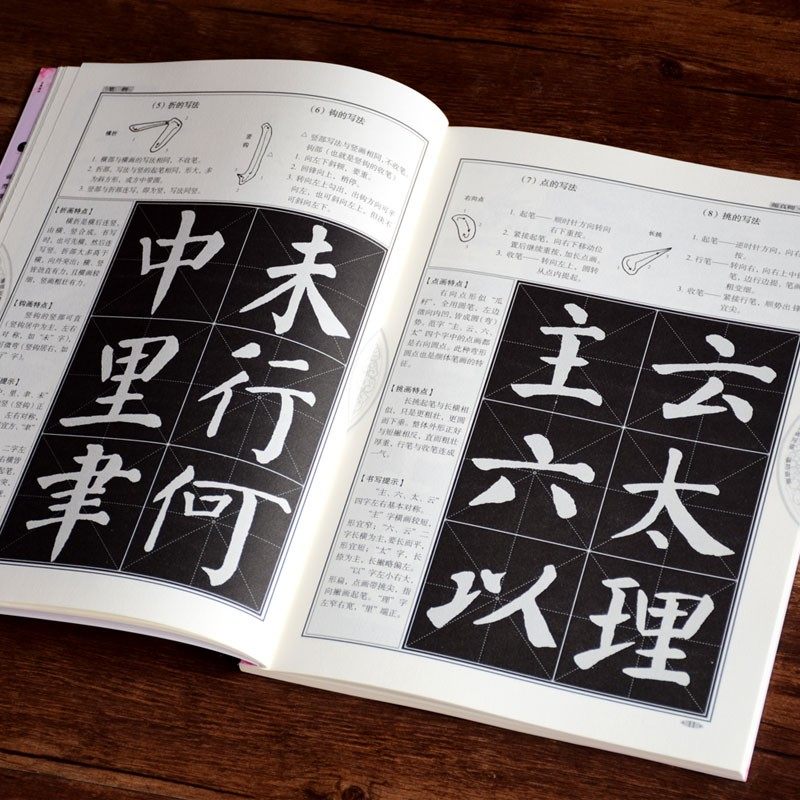 笔画
(5)折的写法
横折
1. 横部与横画的写法相同,不收笔。
2. 折部,写法与竖的起笔相同,形大,多
为斜方形,或方中带圆。
3. 竖部与折部连写,即为竖,写法同竖。
(6)钩的写法
竖钩
△ 竖部写法与竖画相同,不收笔,
钩部(也就是竖钩的收笔)
1. 向左下斜顿,要重。
2. 回锋向上,稍停。
3. 转向左上勾出,出钩方向可平
向左,也可斜向左上,但决不
可斜向左下。
【折画特点】
横折是横后连竖,
由横、竖合成。书写
时,也可先横,然后连
写竖。折部大多高于
横,向外突出;横、竖
皆劲直有力,且横画较
细,竖画粗壮有力。
【钩画特点】
中未
里行
聿何
(7)点的写法
右向点
1. 起笔——顺时针方向转向
右下重按。
2. 紧接起笔,向右下移动位
置后继续重按,加长点画。
3. 收笔——转向左上,圆转
从点内提起。
(8)挑的写法
长挑
1. 起笔——逆时针方向,向右
按。
2. 行笔——转向右,向右上中
笔,边行边提,笔画
粗变细。
3. 收笔——紧接行笔,顺势出锋
宜尖。
【点画特点】
右向点形似“瓜
籽”,全用圆笔,左边
微向内凹,皆成圆(弯)
势。范字“主、云、六、
太”四个字中的点画都
是右向圆点。此种弯形
圆点也是颜体笔画的特
征。
【挑画特点】
长挑起笔与长横相
似,只是更粗壮,更圆
而下垂。整体外形正好
与短撇相反,直而粗壮
厚重,行笔与收笔连成
一气。
【书写提示】
“主、六、太、云”
四字左右基本对称。
“主”字横画较短,
形宜窄;“六、云”二
字长横为主,要长而平,
形宜短;“太”字,长
捺为主,长撇略偏左。
“以”字左小右大,
形扁,点画带挑尖,指
向撇画起笔。“理”字
左窄右宽,“里”端正。
主云
六太
以理